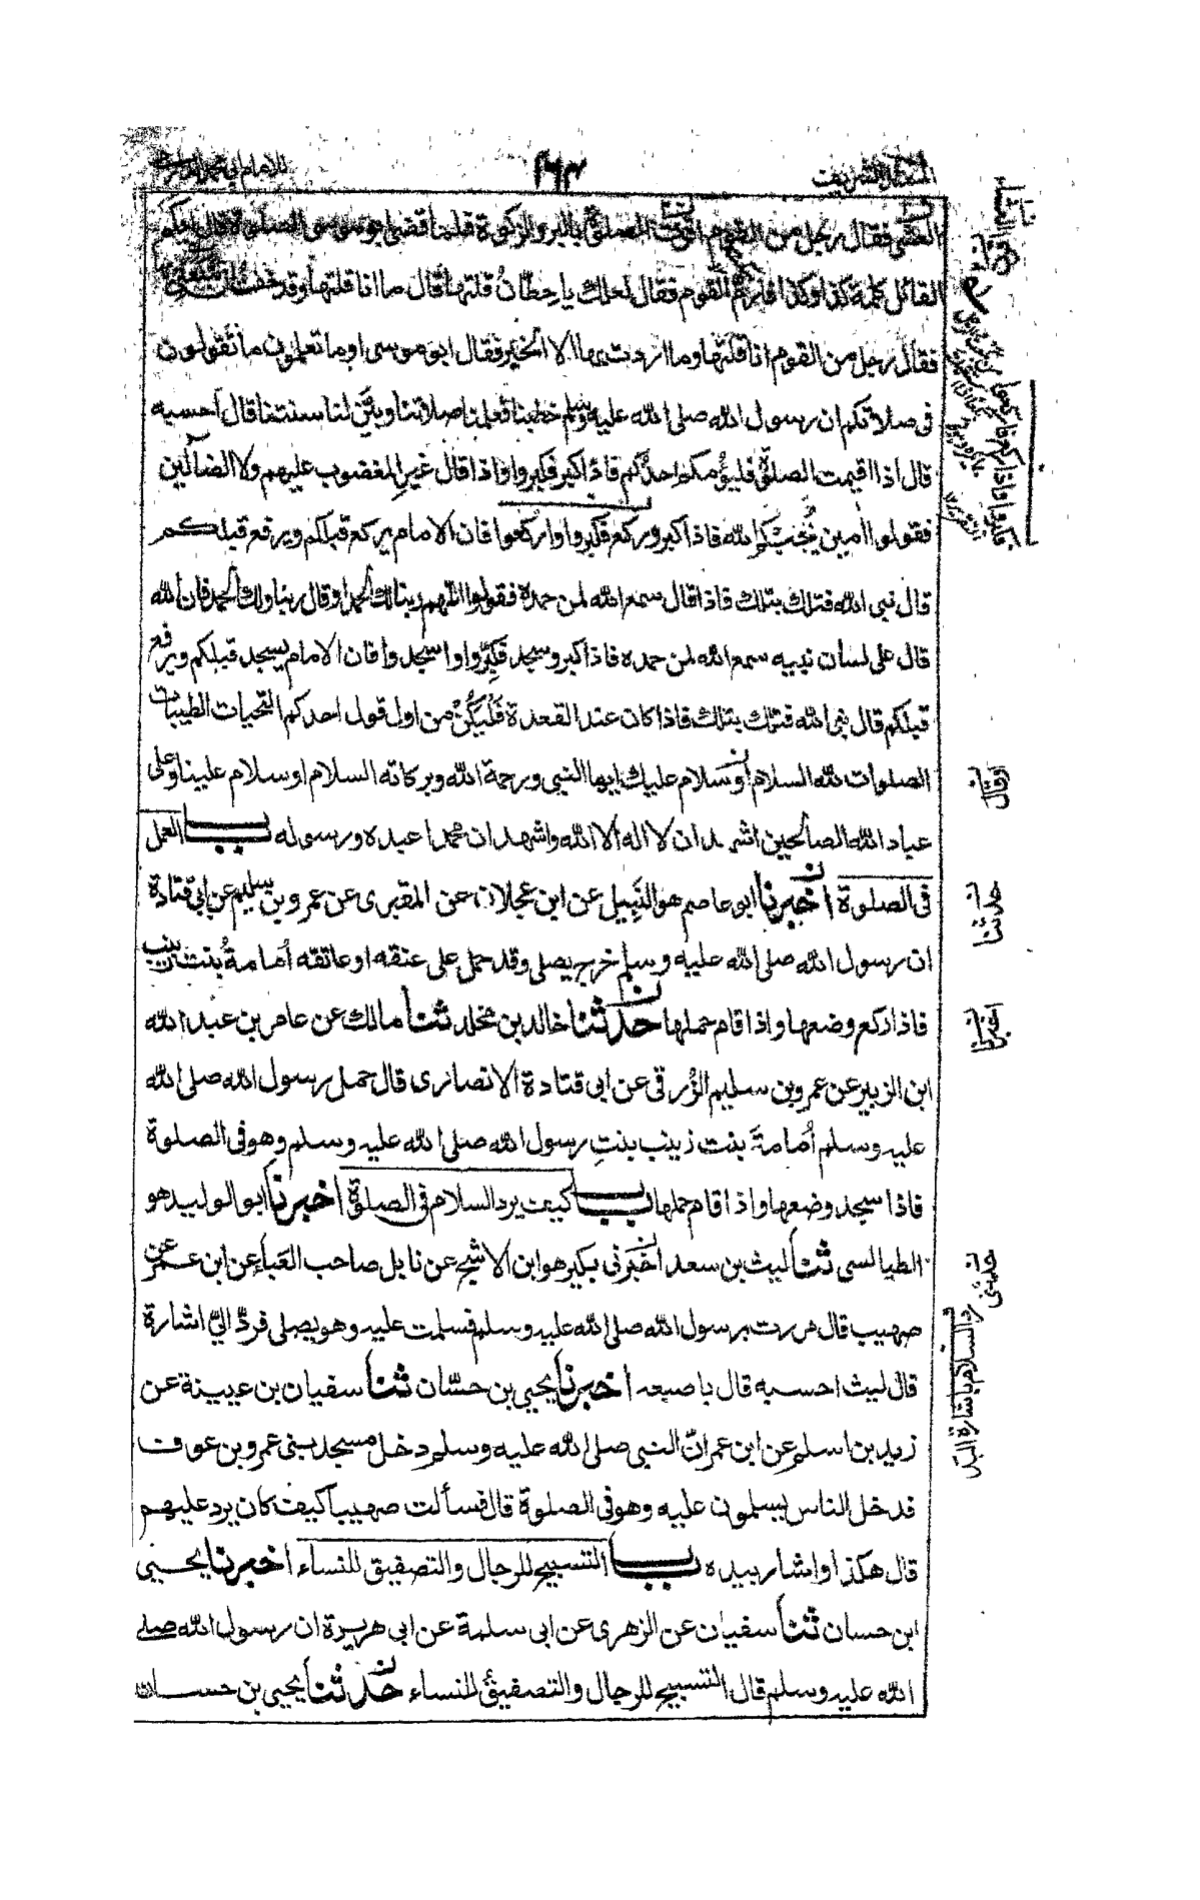 المسند الشريف ١٦٣ للامام ابي محمد
العشى فقال رجل من القوم اقرت الصلوة بالبر والزكوة فلما قضى ابو موسى الصلوة قال ايكم
القائل كلمة كذا وكذا فارم القوم فقال لعلك يا حطان قلتها قال ما انا قلتها وقد خفت ان
فقال رجل من القوم انا قلتها وما اردت بها الا الخير فقال ابو موسى او ما تعلمون ما تقولون
فى صلاتكم ان رسول الله صلى الله عليه وسلم خطبنا فعلمنا صلاتنا وبيّن لنا سنتنا قال احسبه
قال اذا اقيمت الصلوة فليؤمكم احدكم فاذا كبر فكبروا واذا قال غير المغضوب عليهم ولا الضالين
فقولوا امين يُجبكم الله فاذا كبر وركع فكبروا واركعوا فان الامام يركع قبلكم ويرفع قبلكم
قال نبى الله فتلك بتلك فاذا قال سمع الله لمن حمده فقولوا اللهم ربنا لك الحمد او قال ربنا ولك الحمد فان الله
قال على لسان نبيه سمع الله لمن حمده فاذا كبر وسجد فكبّروا واسجدوا فان الامام يسجد قبلكم ويرفع
قبلكم قال نبى الله فتلك بتلك فاذا كان عند القعدة فَلْيَكُنْ من اول قول احدكم التحيات الطيبات
الصلوات لله السلام او سلام عليك ايها النبى ورحمة الله وبركاته السلام او سلام علينا وعلى
عباد الله الصالحين اشهد ان لا اله الا الله واشهد ان محمدا عبده ورسوله باب العمل
فى الصلوة اخبرنا ابو عاصم هو النَّبِيل عن ابن عجلان عن المقبرى عن عمرو بن سليم عن ابى قتادة
ان رسول الله صلى الله عليه وسلم خرج يصلى وقد حمل على عنقه او عاتقه اُمامة بُنت زينب
فاذا ركع وضعها واذا قام حملها حدثنا خالد بن مخلد ثنا مالك عن عامر بن عبد الله
ابن الزبير عن عمرو بن سليم الزُّرقى عن ابى قتادة الانصارى قال حمل رسول الله صلى الله
عليه وسلم اُمامةَ بنت زينب بنتِ رسول الله صلى الله عليه وسلم وهو فى الصلوة
فاذا سجد وضعها واذا قام حملها باب كيف يرد السلام فى الصلوة اخبرنا ابو الوليد هو
الطيالسى ثنا ليث بن سعد اخبرنى بكير هو ابن الاشج عن نابل صاحب العَباء عن ابن عمر عن
صهيب قال مررت برسول الله صلى الله عليه وسلم فسلمت عليه وهو يصلى فردّ الىّ اشارة
قال ليث احسبه قال باصبعه اخبرنا يحيى بن حسّان ثنا سفيان بن عيينة عن
زيد بن اسلم عن ابن عمر انّ النبى صلى الله عليه وسلم دخل مسجد بنى عمرو بن عوف
فدخل الناس يسلمون عليه وهو فى الصلوة قال فسألت صهيبا كيف كان يرد عليهم
قال هكذا واشار بيده باب التسبيح للرجال والتصفيق للنساء اخبرنا يحيى
ابن حسان ثنا سفيان عن الزهرى عن ابى سلمة عن ابى هريرة ان رسول الله صلى
الله عليه وسلم قال التسبيح للرجال والتصفيق للنساء حدثنا يحيى بن حسان
او قال
حدثنا
اخبرنا
حدثنى
رد السلام باشارة اليد